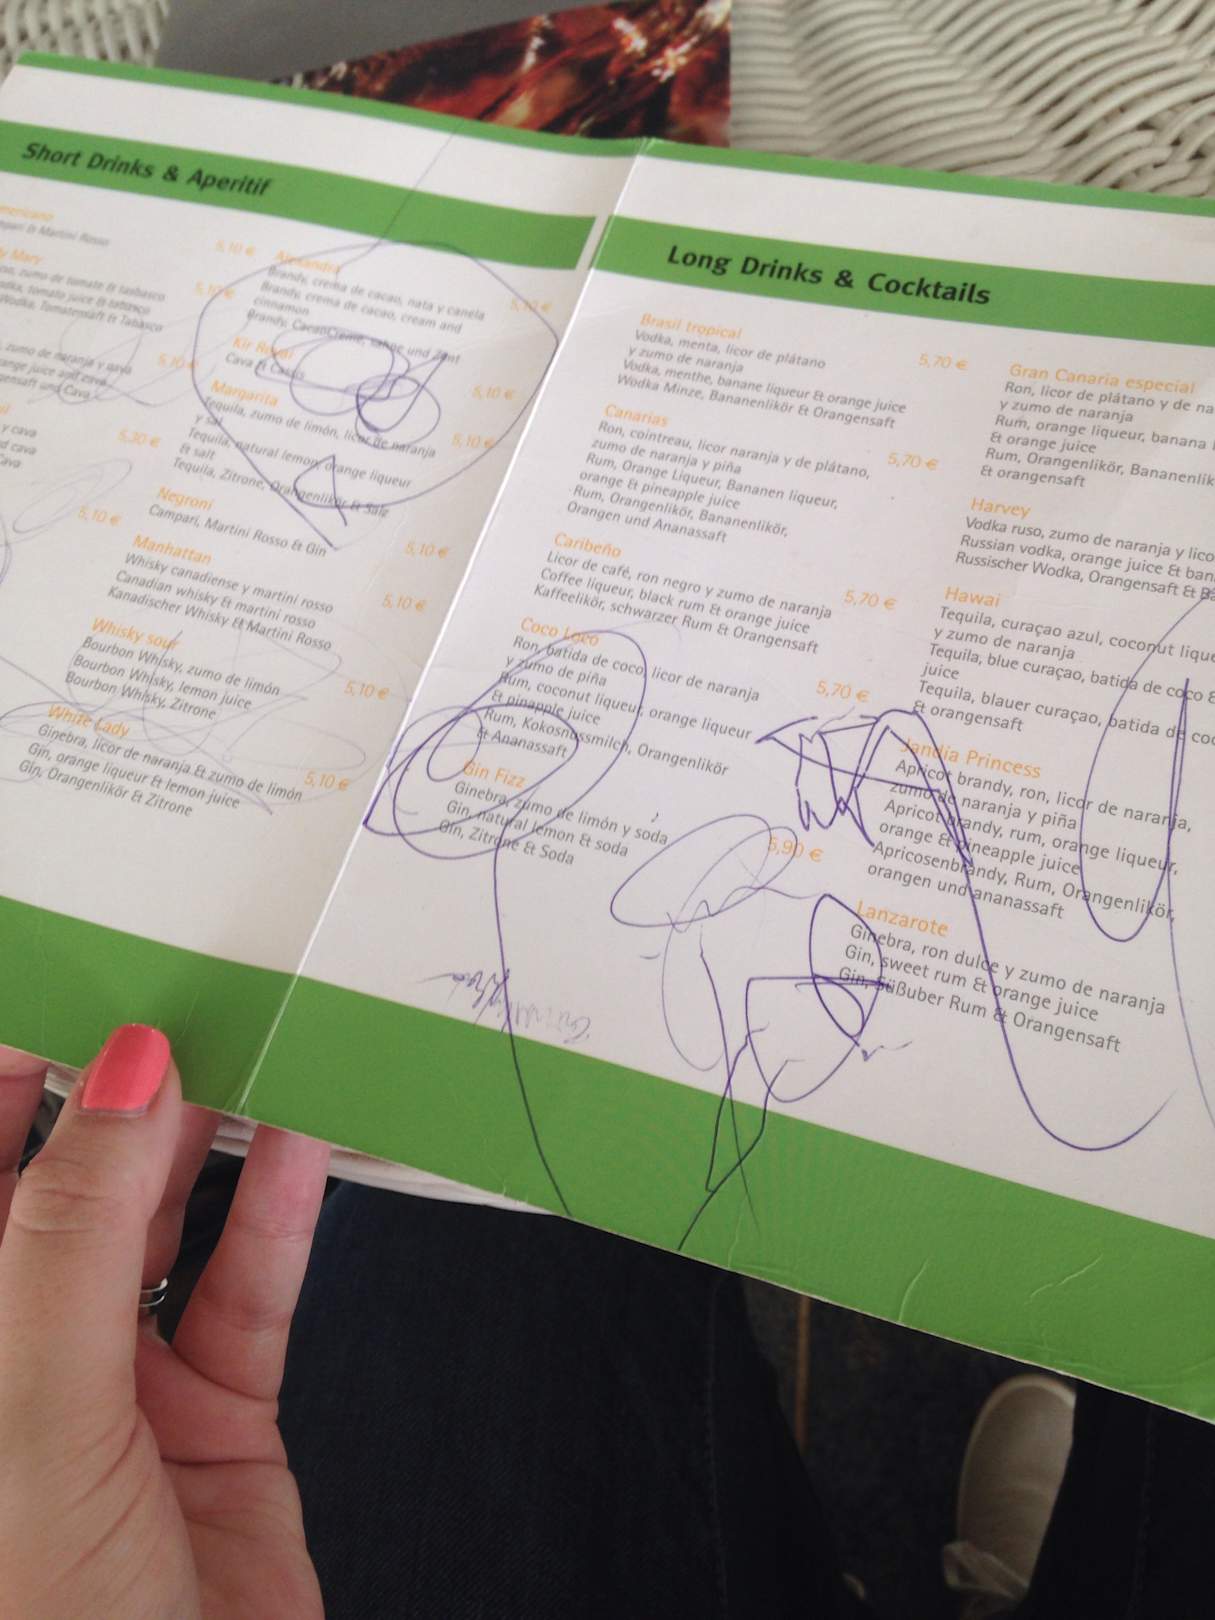 Short Drinks & Aperitif
mericano
mpari & Martini Rosso
5,10 €
y Mary
zumo de tomate & tasbasco
odka, tomato juice & tabasco
Wodka, Tomatensaft & Tabasco
5,10 €
zumo de naranja y cava
range juice and cava
gensaft und Cava
5,10 €
y cava
d cava
Cava
5,30 €
5,10 €
Alexandra
Brandy, crema de cacao, nata y canela
Brandy, crema de cacao, cream and
cinnamon
Brandy, CacaoCreme, Sahne und Zimt
5,10 €
Kir Royal
Cava & Cassis
5,10 €
Margarita
Tequila, zumo de limón, licor de naranja
y sal
Tequila, natural lemon, orange liqueur
& salt
Tequila, Zitrone, Orangenlikör & Salz
5,10 €
Negroni
Campari, Martini Rosso & Gin
5,10 €
Manhattan
Whisky canadiense y martini rosso
Canadian whisky & martini rosso
Kanadischer Whisky & Martini Rosso
5,10 €
Whisky sour
Bourbon Whisky, zumo de limón
Bourbon Whisky, lemon juice
Bourbon Whisky, Zitrone
5,10 €
White Lady
Ginebra, licor de naranja & zumo de limón
Gin, orange liqueur & lemon juice
Gin, Orangenlikör & Zitrone
5,10 €
Long Drinks & Cocktails
Brasil tropical
Vodka, menta, licor de plátano
y zumo de naranja
Vodka, menthe, banane liqueur & orange juice
Wodka Minze, Bananenlikör & Orangensaft
5,70 €
Canarias
Ron, cointreau, licor naranja y de plátano,
zumo de naranja y piña
Rum, Orange Liqueur, Bananen liqueur,
orange & pineapple juice
Rum, Orangenlikör, Bananenlikör,
Orangen und Ananassaft
5,70 €
Caribeño
Licor de café, ron negro y zumo de naranja
Coffee liqueur, black rum & orange juice
Kaffeelikör, schwarzer Rum & Orangensaft
5,70 €
Coco Loco
Ron, batida de coco, licor de naranja
y zumo de piña
Rum, coconut liqueur, orange liqueur
& pinapple juice
Rum, Kokosnussmilch, Orangenlikör
& Ananassaft
5,70 €
Gin Fizz
Ginebra, zumo de limón y soda
Gin, natural lemon & soda
Gin, Zitrone & Soda
5,90 €
Gran Canaria especial
Ron, licor de plátano y de na
y zumo de naranja
Rum, orange liqueur, banana
& orange juice
Rum, Orangenlikör, Bananenlik
& orangensaft
Harvey
Vodka ruso, zumo de naranja y lico
Russian vodka, orange juice & ban
Russischer Wodka, Orangensaft & Ba
Hawai
Tequila, curaçao azul, coconut lique
y zumo de naranja
Tequila, blue curaçao, batida de coco &
juice
Tequila, blauer curaçao, batida de coc
& orangensaft
Jandía Princess
Apricot brandy, ron, licor de naranja,
zumo de naranja y piña
Apricot brandy, rum, orange liqueur,
orange & pineapple juice
Apricosenbrandy, Rum, Orangenlikör,
orangen und ananassaft
Lanzarote
Ginebra, ron dulce y zumo de naranja
Gin, sweet rum & orange juice
Gin, Süßuber Rum & Orangensaft